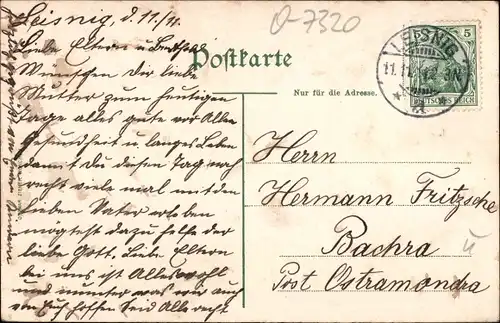 Leisnig, d. 11/11.
O-7320
Liebe Eltern u
Wünschen der liebe
Mutter zum heutigen
Tage alles gute vor Allen
Gesundheit u langes Leben
damit Du diesen Tag noch
recht viele mal mit den
lieben Vater erleben
mögtest dazu helfe der
liebe Gott. Liebe Eltern
bei uns ist Alles wohl
und munter was wir auch
von Euch hoffen Seid Alle recht
Postkarte
Nur für die Adresse.
LEISNIG
11.11. 12. 3N
5
DEUTSCHES REICH
Herrn
Hermann Fritzsche
Bachra
Post Ostramondra